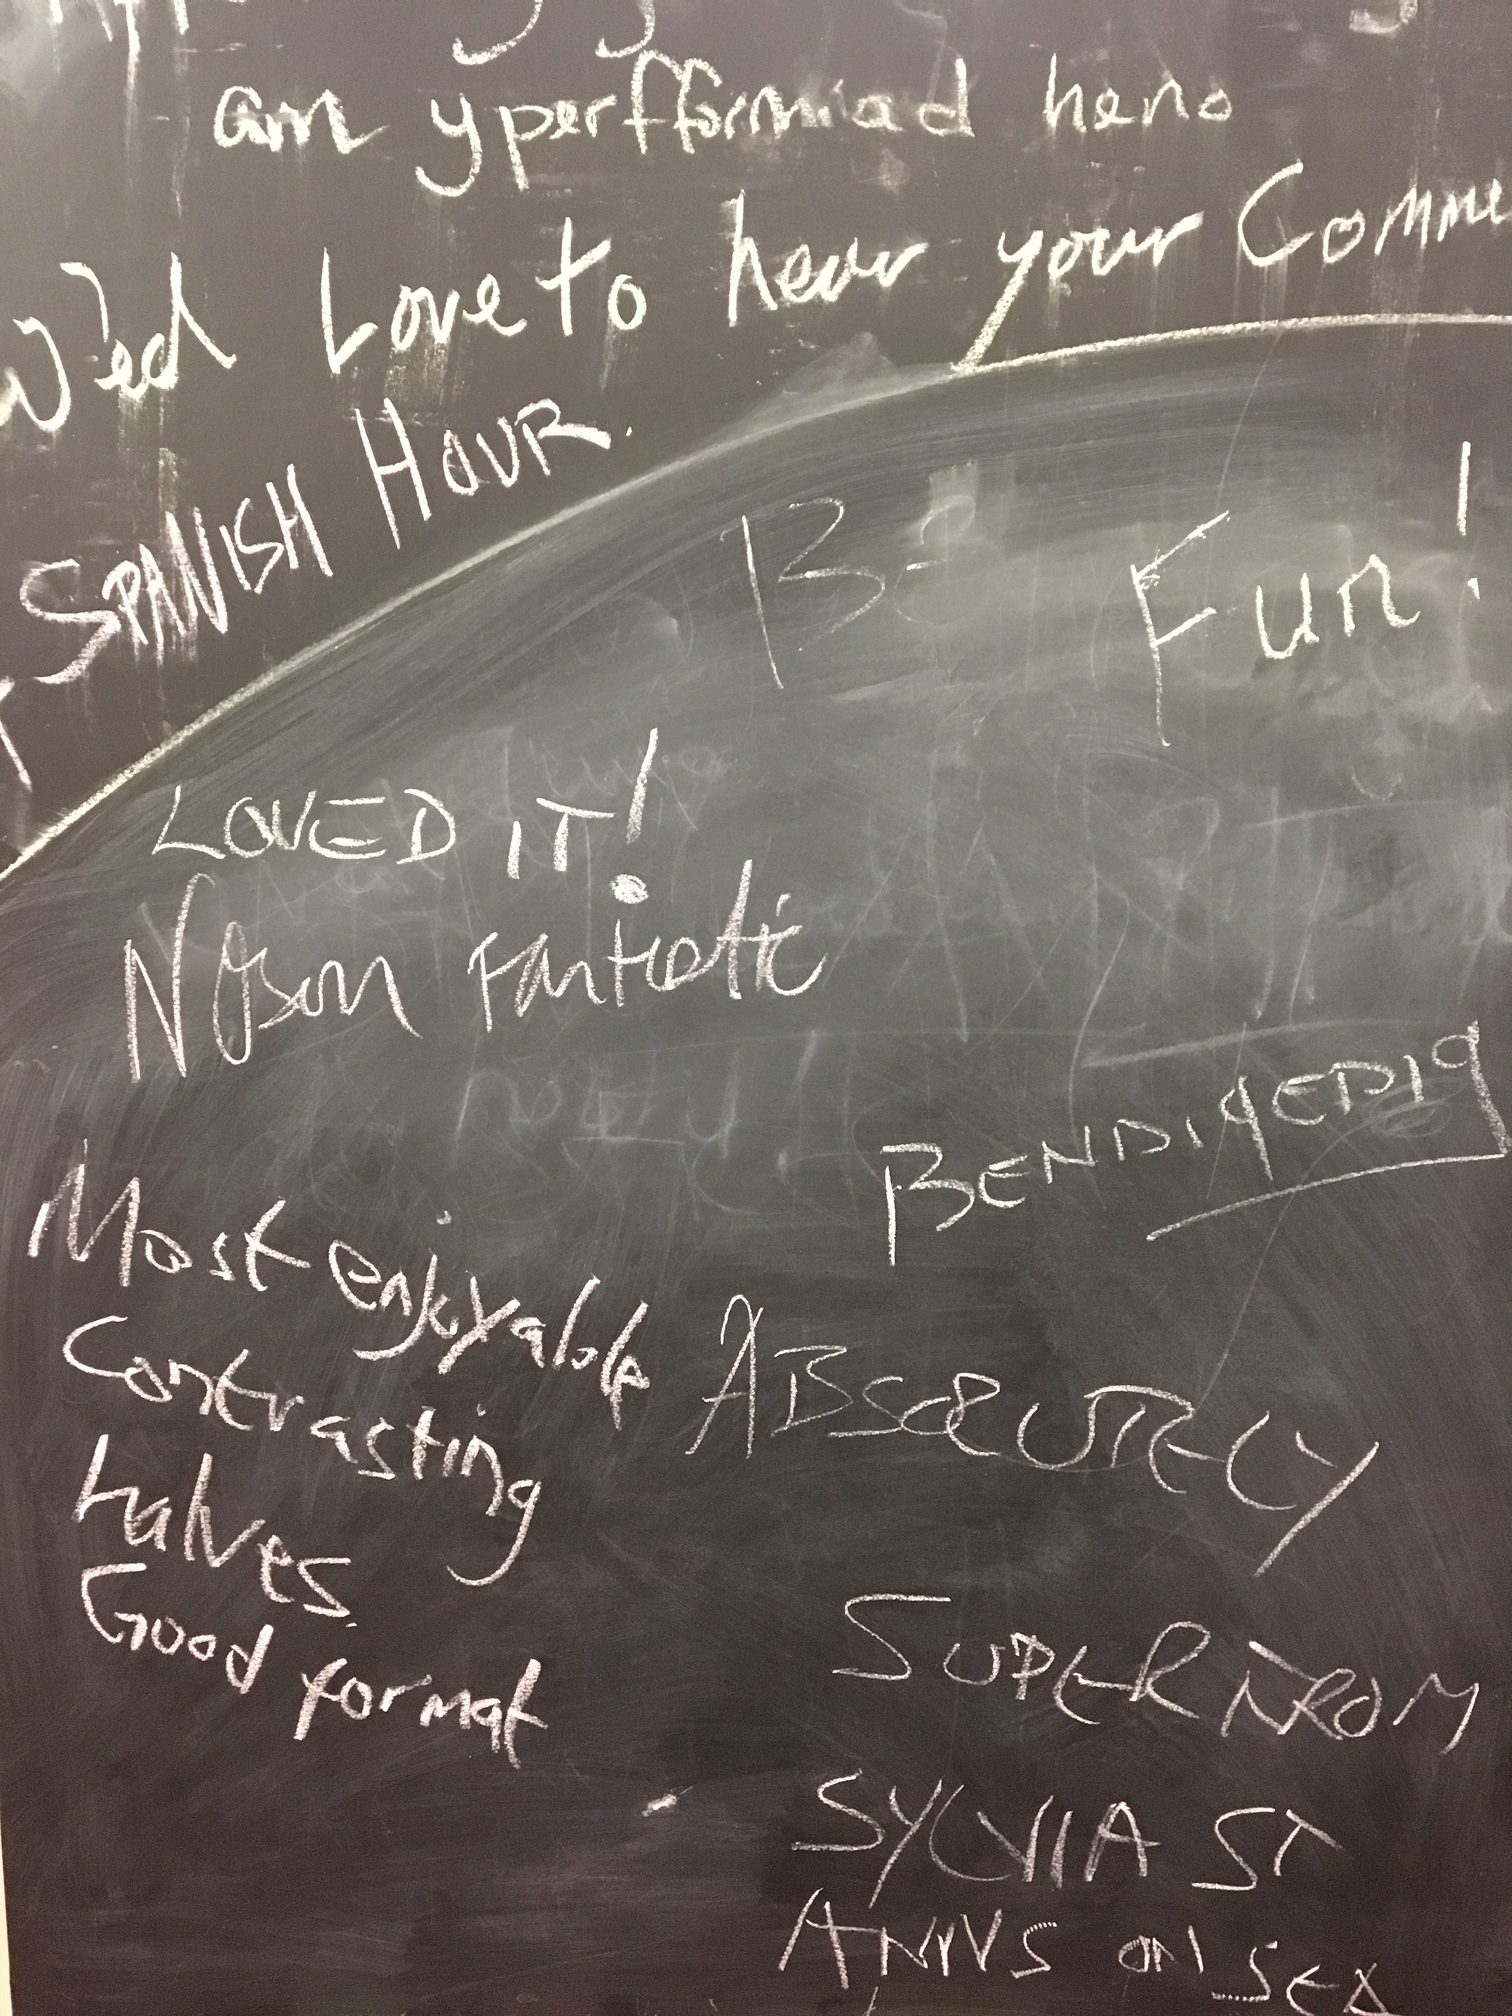 am y perfformiad heno
We'd Love to hear your Comme
SPANISH HOUR.
Fun!
LOVED IT!
Noson Fantastic
BENDIGEDIG
Most enjoyable
Contrasting
halves.
Good format
ABSOLUTELY
SUPER FROM
SYLVIA ST
ANNS ON SEA